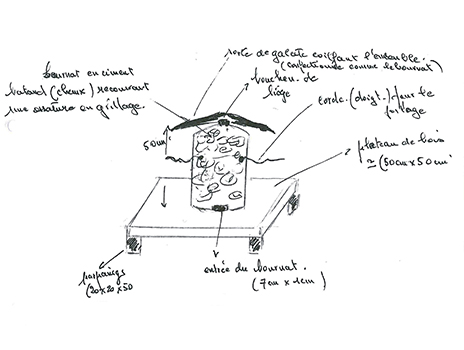 sorte de galette coiffant l'ensemble.
(confectionnée comme le bournat)
bournat en ciment
batard (chaux) recouvrant
une ossature en grillage.
bouchon de
liège
torde. (doigt.) pour le
50cm
plateau de bois
≃ (50cm x 50cm)
parpaings
(20 x 20 x 50
entrée du bournat.
(7cm x 1cm)